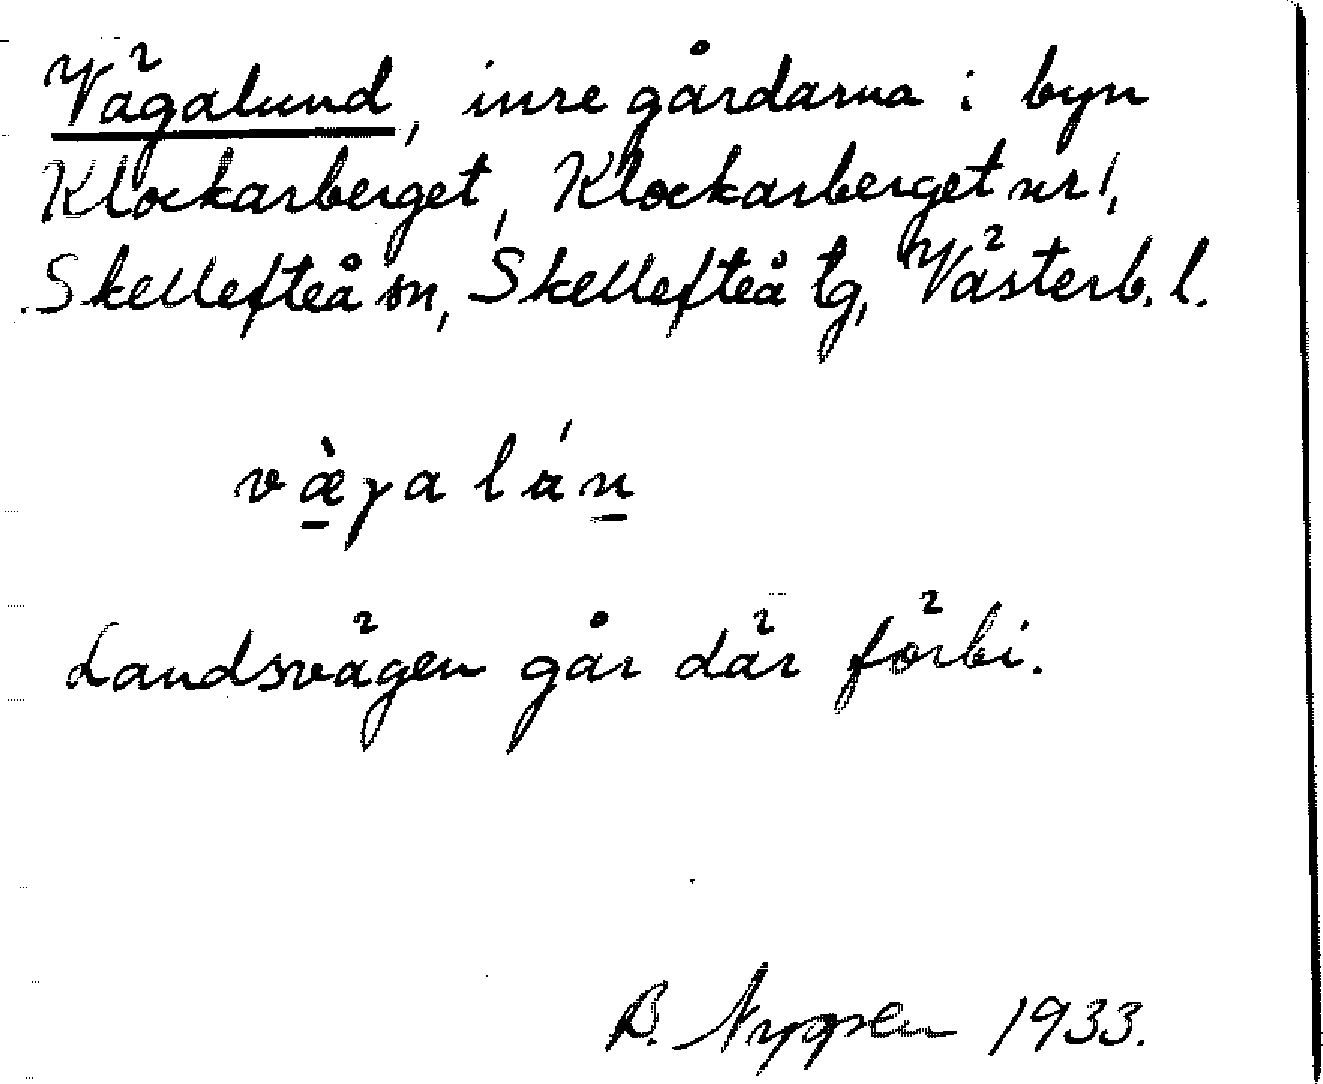 Vägalund, inre gårdarna i byn
Klockarberget, Klockarberget nr 1,
Skellefteå sn, Skellefteå tg, Västerb. l.
væ̠̀γa lán̠
Landsvägen går där förbi.
B. Nygren 1933.